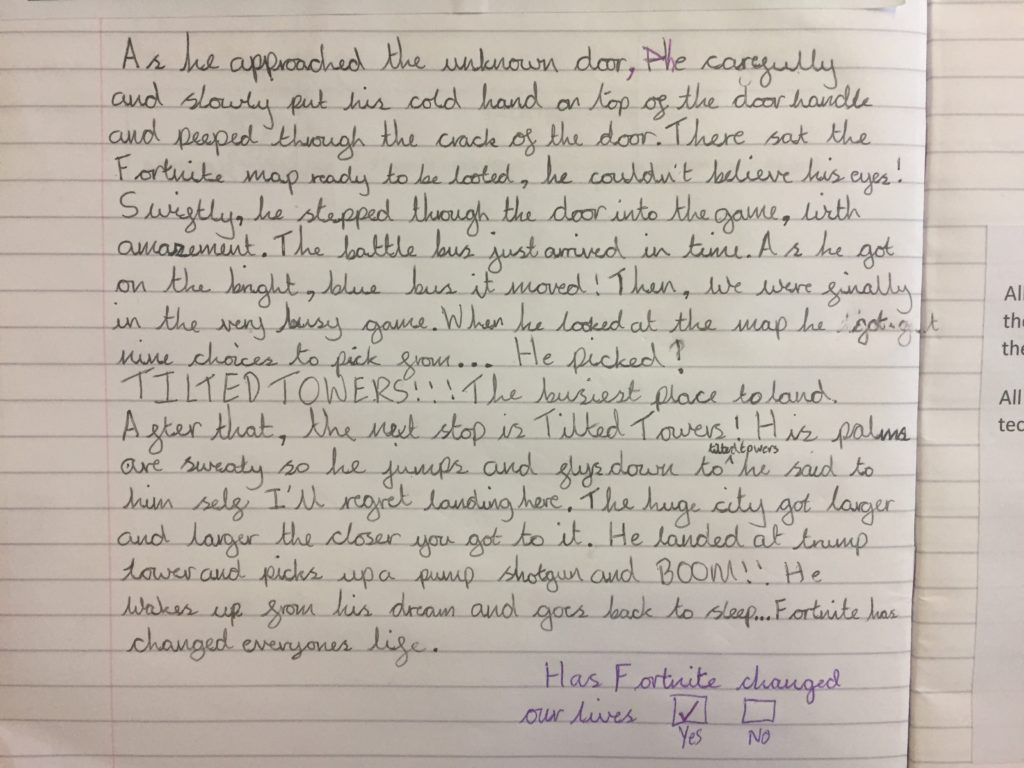 As he approached the unknown door, he carefully
and slowly put his cold hand on top of the door handle
and peeped through the crack of the door. There sat the
Fortnite map ready to be looted, he couldn't believe his eyes!
Swiftly, he stepped through the door into the game, with
amazement. The battle bus just arrived in time. As he got
on the bright, blue bus it moved! Then, we were finally
in the very busy game. When he looked at the map he got
nine choices to pick from... He picked?
TILTED TOWERS!!! The busiest place to land.
After that, the next stop is Tilted Towers! His palms
tilted towers
are sweaty so he jumps and flys down to he said to
him self I'll regret landing here. The huge city got larger
and larger the closer you got to it. He landed at trump
tower and picks up a pump shotgun and BOOM!!! He
wakes up from his dream and goes back to sleep... Fortnite has
changed everyones life.
Has Fortnite changed
our lives
Yes No
All
the
the
All
tec